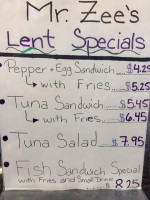 Mr. Zee's
Lent Specials
Pepper + Egg Sandwich ... $4.25
↳ with Fries ... $5.25
Tuna Sandwich $5.45
↳ with Fries ... $6.45
Tuna Salad ... $7.95
Fish Sandwich Special
with Fries and Small Drink
$8.25